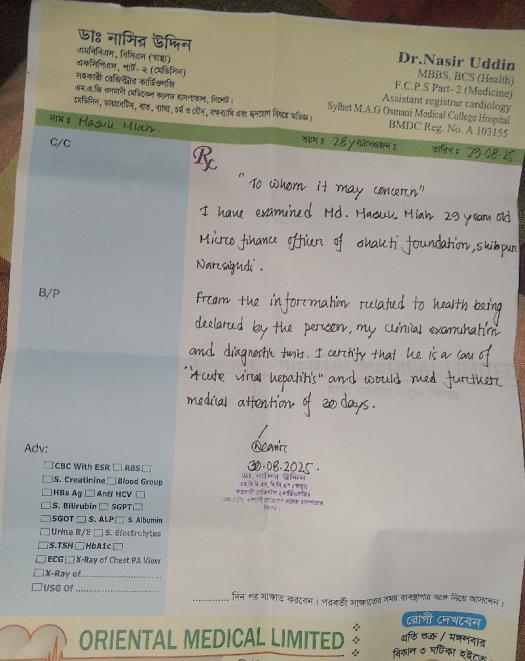 ডাঃ নাসির উদ্দিন
এমবিবিএস, বিসিএস (স্বাস্থ্য)
এফসিপিএস, পার্ট- ২ (মেডিসিন)
সহকারী রেজিস্ট্রার কার্ডিওলজি
এম.এ.জি ওসমানী মেডিকেল কলেজ হাসপাতাল, সিলেট।
মেডিসিন, ডায়াবেটিস, বাত, ব্যাথা, চর্ম ও যৌন, বক্ষব্যাধি এবং হৃদরোগ বিষয়ে অভিজ্ঞ।
Dr.Nasir Uddin
MBBS, BCS (Health)
F.C.P.S Part- 2 (Medicine)
Assistant registrar cardiology
Sylhet M.A.G Osmani Medical College Hospital
BMDC Reg. No. A 103155
নাম ঃ Masuk Miah. বয়স ঃ 28 years তারিখ ঃ 29.08.25
C/C
Rx
"To whom it may concern"
I have examined Md. Masuk Miah 29 years old
Micro finance officer of shakti foundation, shibpur
Narsighdi.
B/P
From the information related to health being
declared by the person, my clinial examination
and diagnostic tests. I certify that he is a cau of
"Acute viral hepatitis" and would need further
medical attention of 30 days.
30.08.2025.
ডা. নাসির উদ্দিন
Adv:
CBC With ESR RBS
S. Creatinine Blood Group
HBs Ag Anti HCV
S. Bilirubin SGPT
SGOT S. ALP S. Albumin
Urine R/E S. Electrolytes
S.TSH HbA1c
ECG X-Ray of Chest PA View
X-Ray of
USG Of
দিন পর সাক্ষাত করবেন। পরবর্তী সাক্ষাতের সময় ব্যবস্থাপত্র সঙ্গে নিয়ে আসবেন।
ORIENTAL MEDICAL LIMITED
রোগী দেখবেন
প্রতি শুক্র / মঙ্গলবার
বিকাল ৩ ঘটিকা হইতে